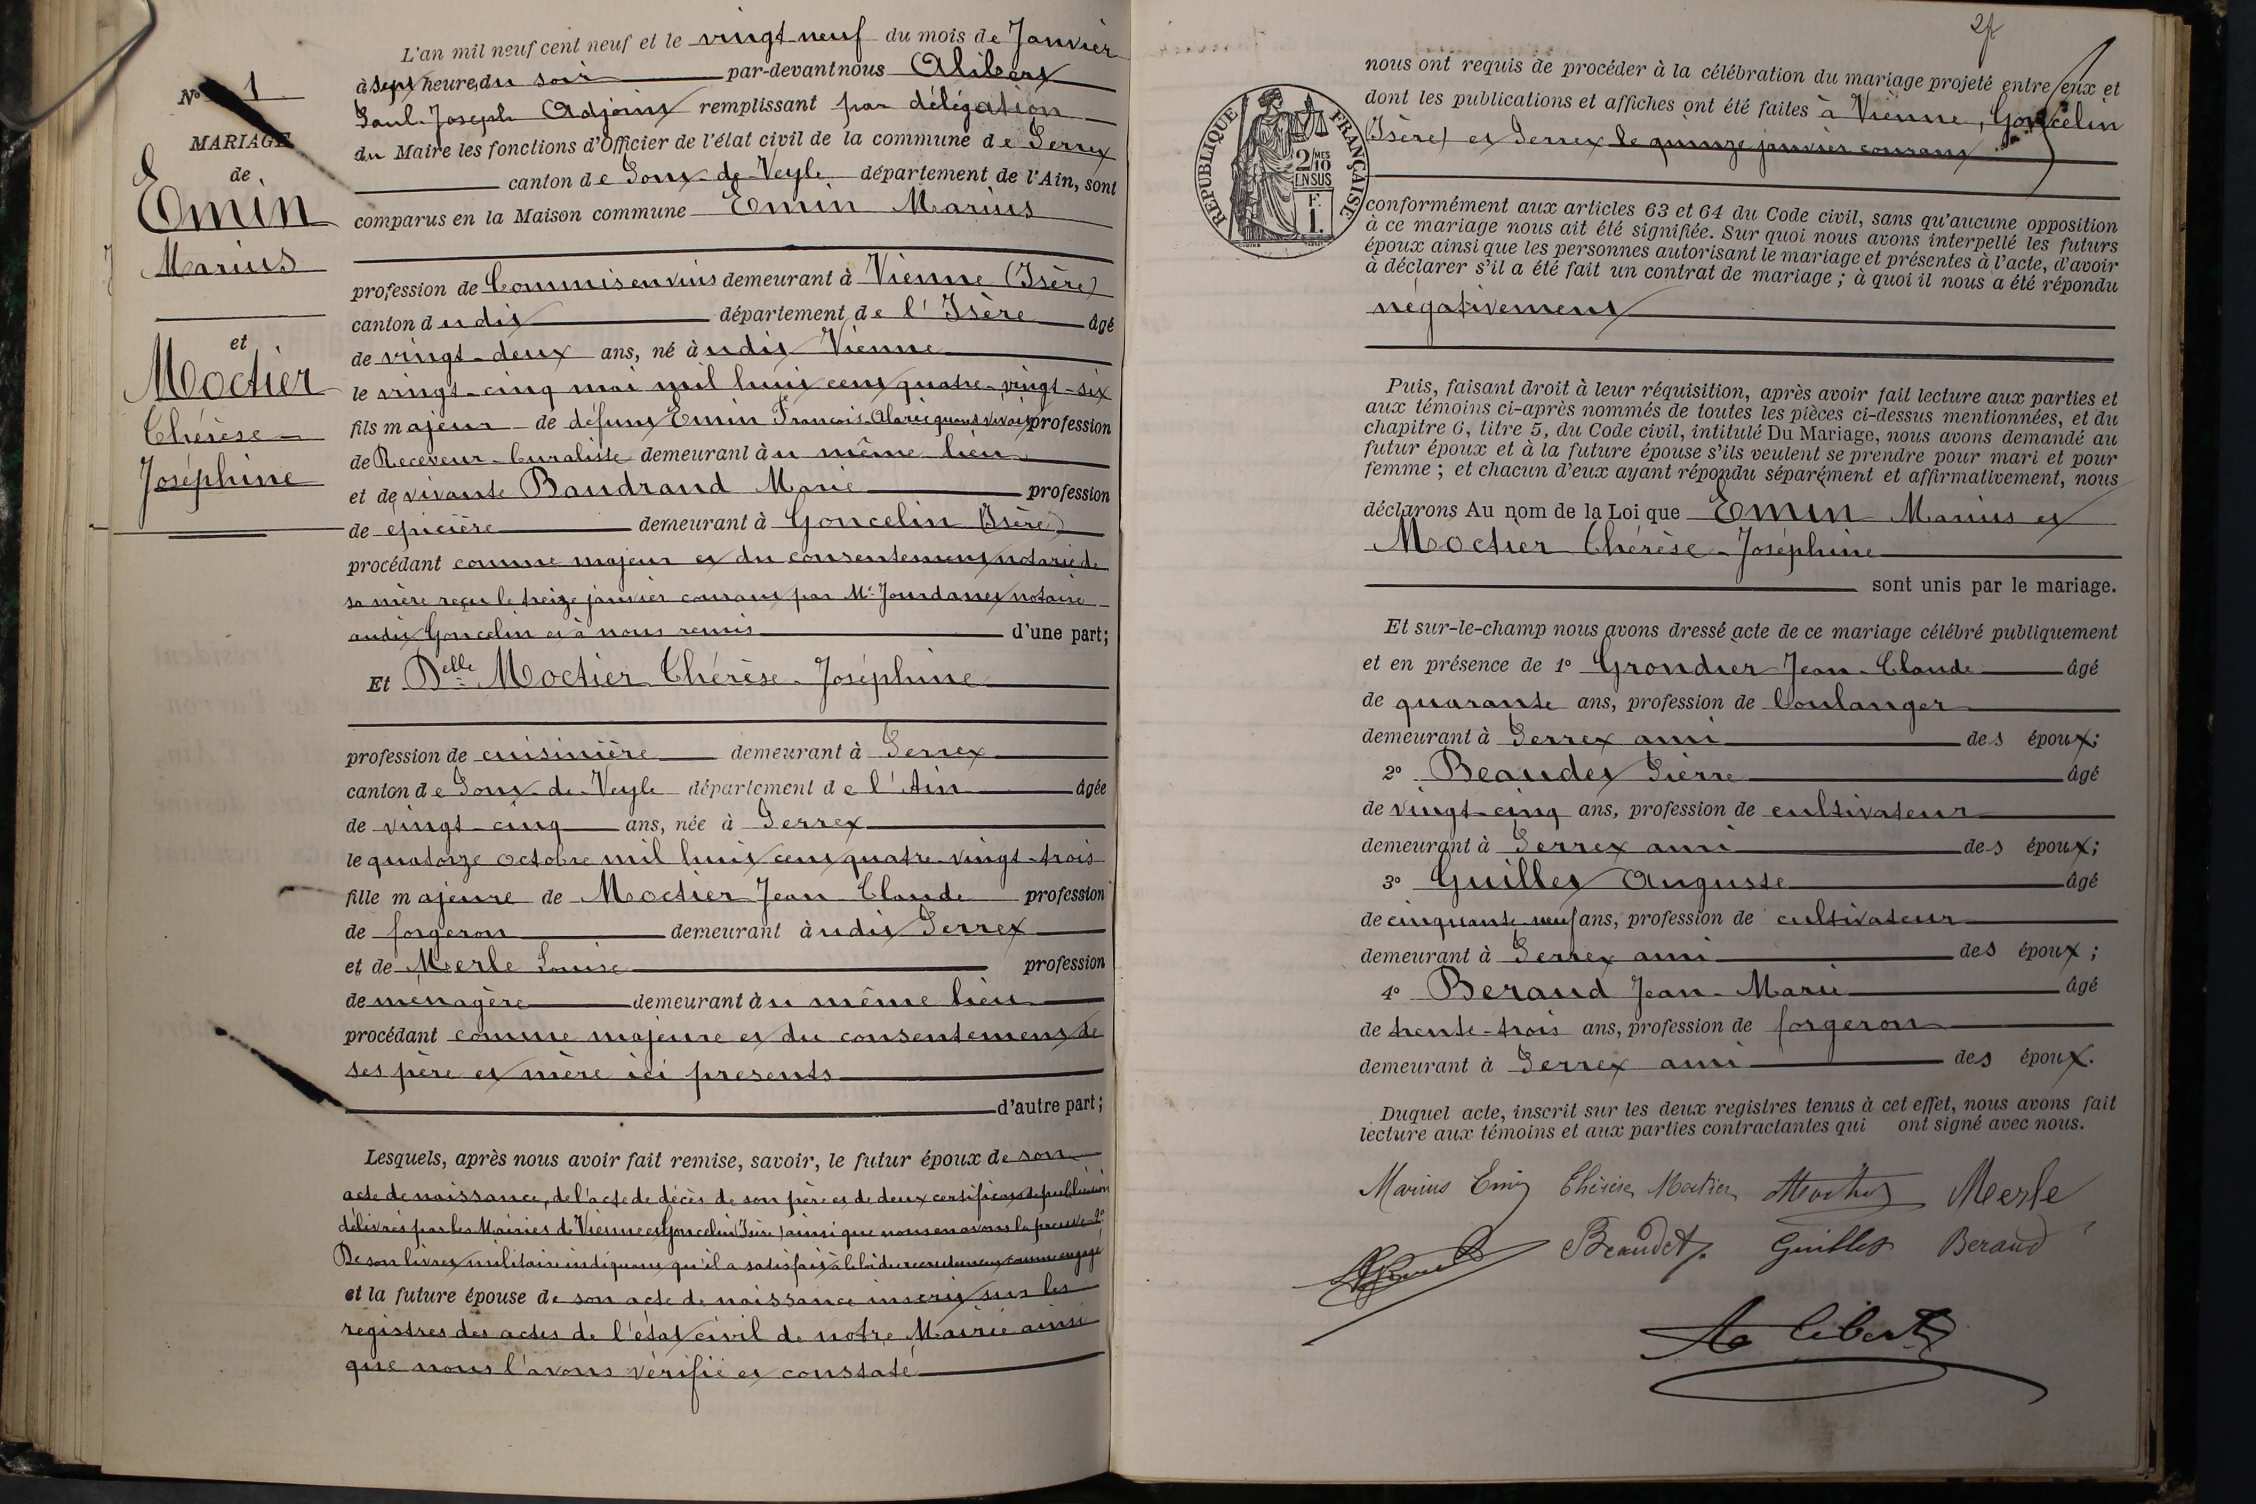 N° 1
MARIAGE
de
Emin
Marius
et
Moctier
Thérèse
Joséphine
L'an mil neuf cent neuf et le vingt neuf du mois de Janvier
à sept heure du soir par-devant nous Alibert
Paul Joseph Adjoint remplissant par délégation
du Maire les fonctions d'Officier de l'état civil de la commune de Perrex
canton de Pont-de-Veyle département de l'Ain, sont
comparus en la Maison commune Emin Marius
profession de Commis en vins demeurant à Vienne (Isère)
canton dudit département de l'Isère âgé
de vingt-deux ans, né audit Vienne
le vingt-cinq mai mil huit cent quatre-vingt-six
fils majeur de défunt Emin François Alaric quand vivait profession
de Receveur-buraliste demeurant au même lieu
et de vivante Baudrand Marie profession
de épicière demeurant à Goncelin (Isère)
procédant comme majeur et du consentement notarié de
sa mère reçu le treize janvier courant par Me Jourdanet notaire
audit Goncelin et à nous remis d'une part;
Et Delle Moctier Thérèse-Joséphine
profession de cuisinière demeurant à Perrex
canton de Pont-de-Veyle département de l'Ain âgée
de vingt-cinq ans, née à Perrex
le quatorze octobre mil huit cent quatre-vingt-trois
fille majeure de Moctier Jean Claude profession
de forgeron demeurant audit Perrex
et de Merle Louise profession
de ménagère demeurant au même lieu
procédant comme majeure et du consentement de
ses père et mère ici présents
d'autre part;
Lesquels, après nous avoir fait remise, savoir, le futur époux de son
acte de naissance, de l'acte de décès de son père et de deux certificats de publication
délivrés par les Mairies de Vienne et Goncelin (Isère) ainsi que nous en avons la preuve 2°
De son livret militaire indiquant qu'il a satisfait à la loi du recrutement comme engagé
et la future épouse de son acte de naissance inscrit sur les
registres des actes de l'état civil de notre Mairie ainsi
que nous l'avons vérifié et constaté
2f
RÉPUBLIQUE FRANÇAISE
2/10MES
EN SUS
F.
1.
nous ont requis de procéder à la célébration du mariage projeté entre eux et
dont les publications et affiches ont été faites à Vienne, Goncelin
(Isère) et Perrex le quinze janvier courant
conformément aux articles 63 et 64 du Code civil, sans qu'aucune opposition
à ce mariage nous ait été signifiée. Sur quoi nous avons interpellé les futurs
époux ainsi que les personnes autorisant le mariage et présentes à l'acte, d'avoir
à déclarer s'il a été fait un contrat de mariage ; à quoi il nous a été répondu
négativement
Puis, faisant droit à leur réquisition, après avoir fait lecture aux parties et
aux témoins ci-après nommés de toutes les pièces ci-dessus mentionnées, et du
chapitre 6, titre 5, du Code civil, intitulé Du Mariage, nous avons demandé au
futur époux et à la future épouse s'ils veulent se prendre pour mari et pour
femme ; et chacun d'eux ayant répondu séparément et affirmativement, nous
déclarons Au nom de la Loi que Emin Marius et
Moctier Thérèse-Joséphine
sont unis par le mariage.
Et sur-le-champ nous avons dressé acte de ce mariage célébré publiquement
et en présence de 1° Grondier Jean-Claude âgé
de quarante ans, profession de boulanger
demeurant à Perrex ami des époux;
2° Beaudet Pierre âgé
de vingt-cinq ans, profession de cultivateur
demeurant à Perrex ami des époux;
3° Guillet Auguste âgé
de cinquante-neuf ans, profession de cultivateur
demeurant à Perrex ami des époux ;
4° Beraud Jean-Marie âgé
de trente-trois ans, profession de forgeron
demeurant à Perrex ami des époux.
Duquel acte, inscrit sur les deux registres tenus à cet effet, nous avons fait
lecture aux témoins et aux parties contractantes qui ont signé avec nous.
Marius Emin Thérèse Moctier Moctier Merle
Beaudet P. Guillet Beraud
Alibert